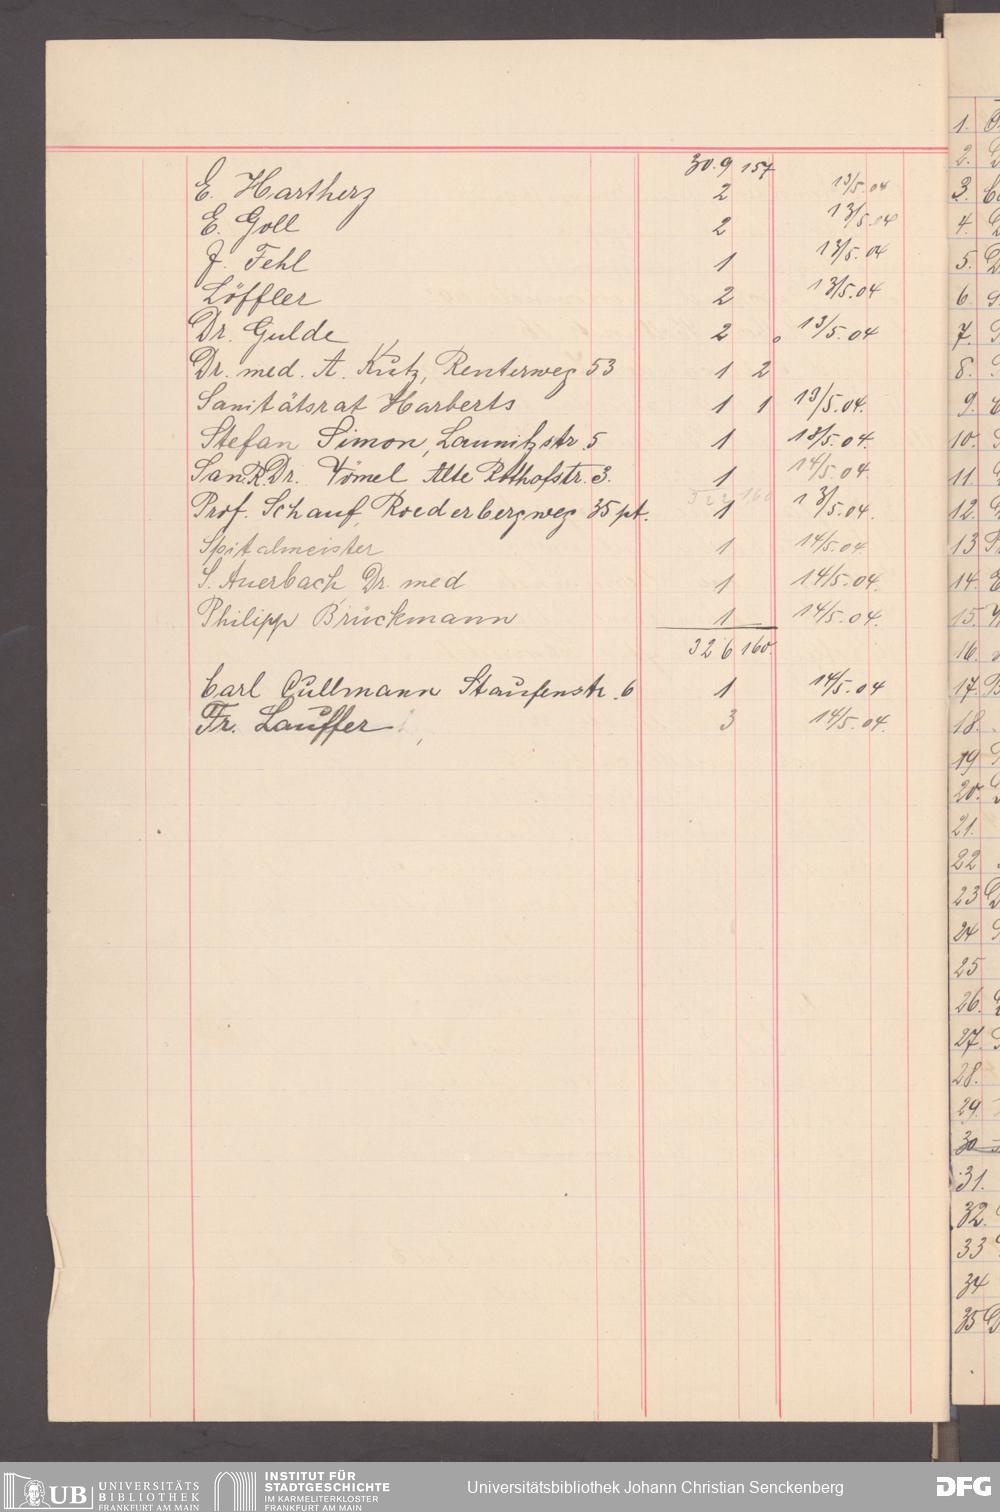 30.9 157
E. Hartherz 2 13/5.04
E. Goll 2 13/5.04
J. Fehl 1 13/5.04
Löffler 2 13/5.04
Dr. Gulde 2 0 13/5.04
Dr. med. A. Kutz, Renterweg 53 1 2
Sanitätsrat Harberts 1 1 13/5.04.
Stefan Simon, Launitzstr. 5 1 13/5.04.
San.R. Dr. Vömel Alte Rothofstr. 3. 1 14/5.04.
322 160
Prof. Schauf, Roederbergweg 35 pt. 1 13/5.04.
Spitalmeister 1 14/5.04.
S. Auerbach Dr. med 1 14/5.04.
Philipp Brückmann 1 14/5.04.
326 160.
Carl Cullmann Staufenstr. 6 1 14/5.04
Fr. Lauffer 3 14/5.04.
1.
2.
3.
4.
5.
6.
7.
8.
9.
10.
11.
12.
13
14.
15.
16.
17.
18.
19
20.
21.
22
23
24
25
26.
27.
28.
29.
30
31.
32.
33
34
35
UB UNIVERSITÄTS BIBLIOTHEK FRANKFURT AM MAIN
INSTITUT FÜR STADTGESCHICHTE IM KARMELITERKLOSTER FRANKFURT AM MAIN
Universitätsbibliothek Johann Christian Senckenberg
DFG